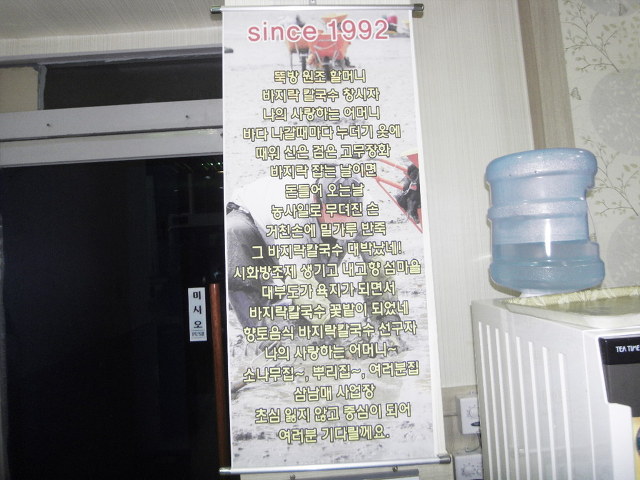 since 1992
뚝방 원조 할머니
바지락 칼국수 창시자
나의 사랑하는 어머니
바다 나갈때마다 누더기 옷에
때워 신은 검은 고무장화
바지락 잡는 날이면
돈들어 오는날
농사일로 무뎌진 손
거친손에 밀가루 반죽
그 바지락칼국수 대박났네!
시화방조제 생기고 내고향 섬마을
대부도가 육지가 되면서
바지락칼국수 꽃밭이 되었네
향토음식 바지락칼국수 선구자
나의 사랑하는 어머니~
소나무집~, 뿌리집~, 여러분집
삼남매 사업장
초심 잃지 않고 중심이 되어
여러분 기다릴께요.
미시오
PUSH
TEA TIME